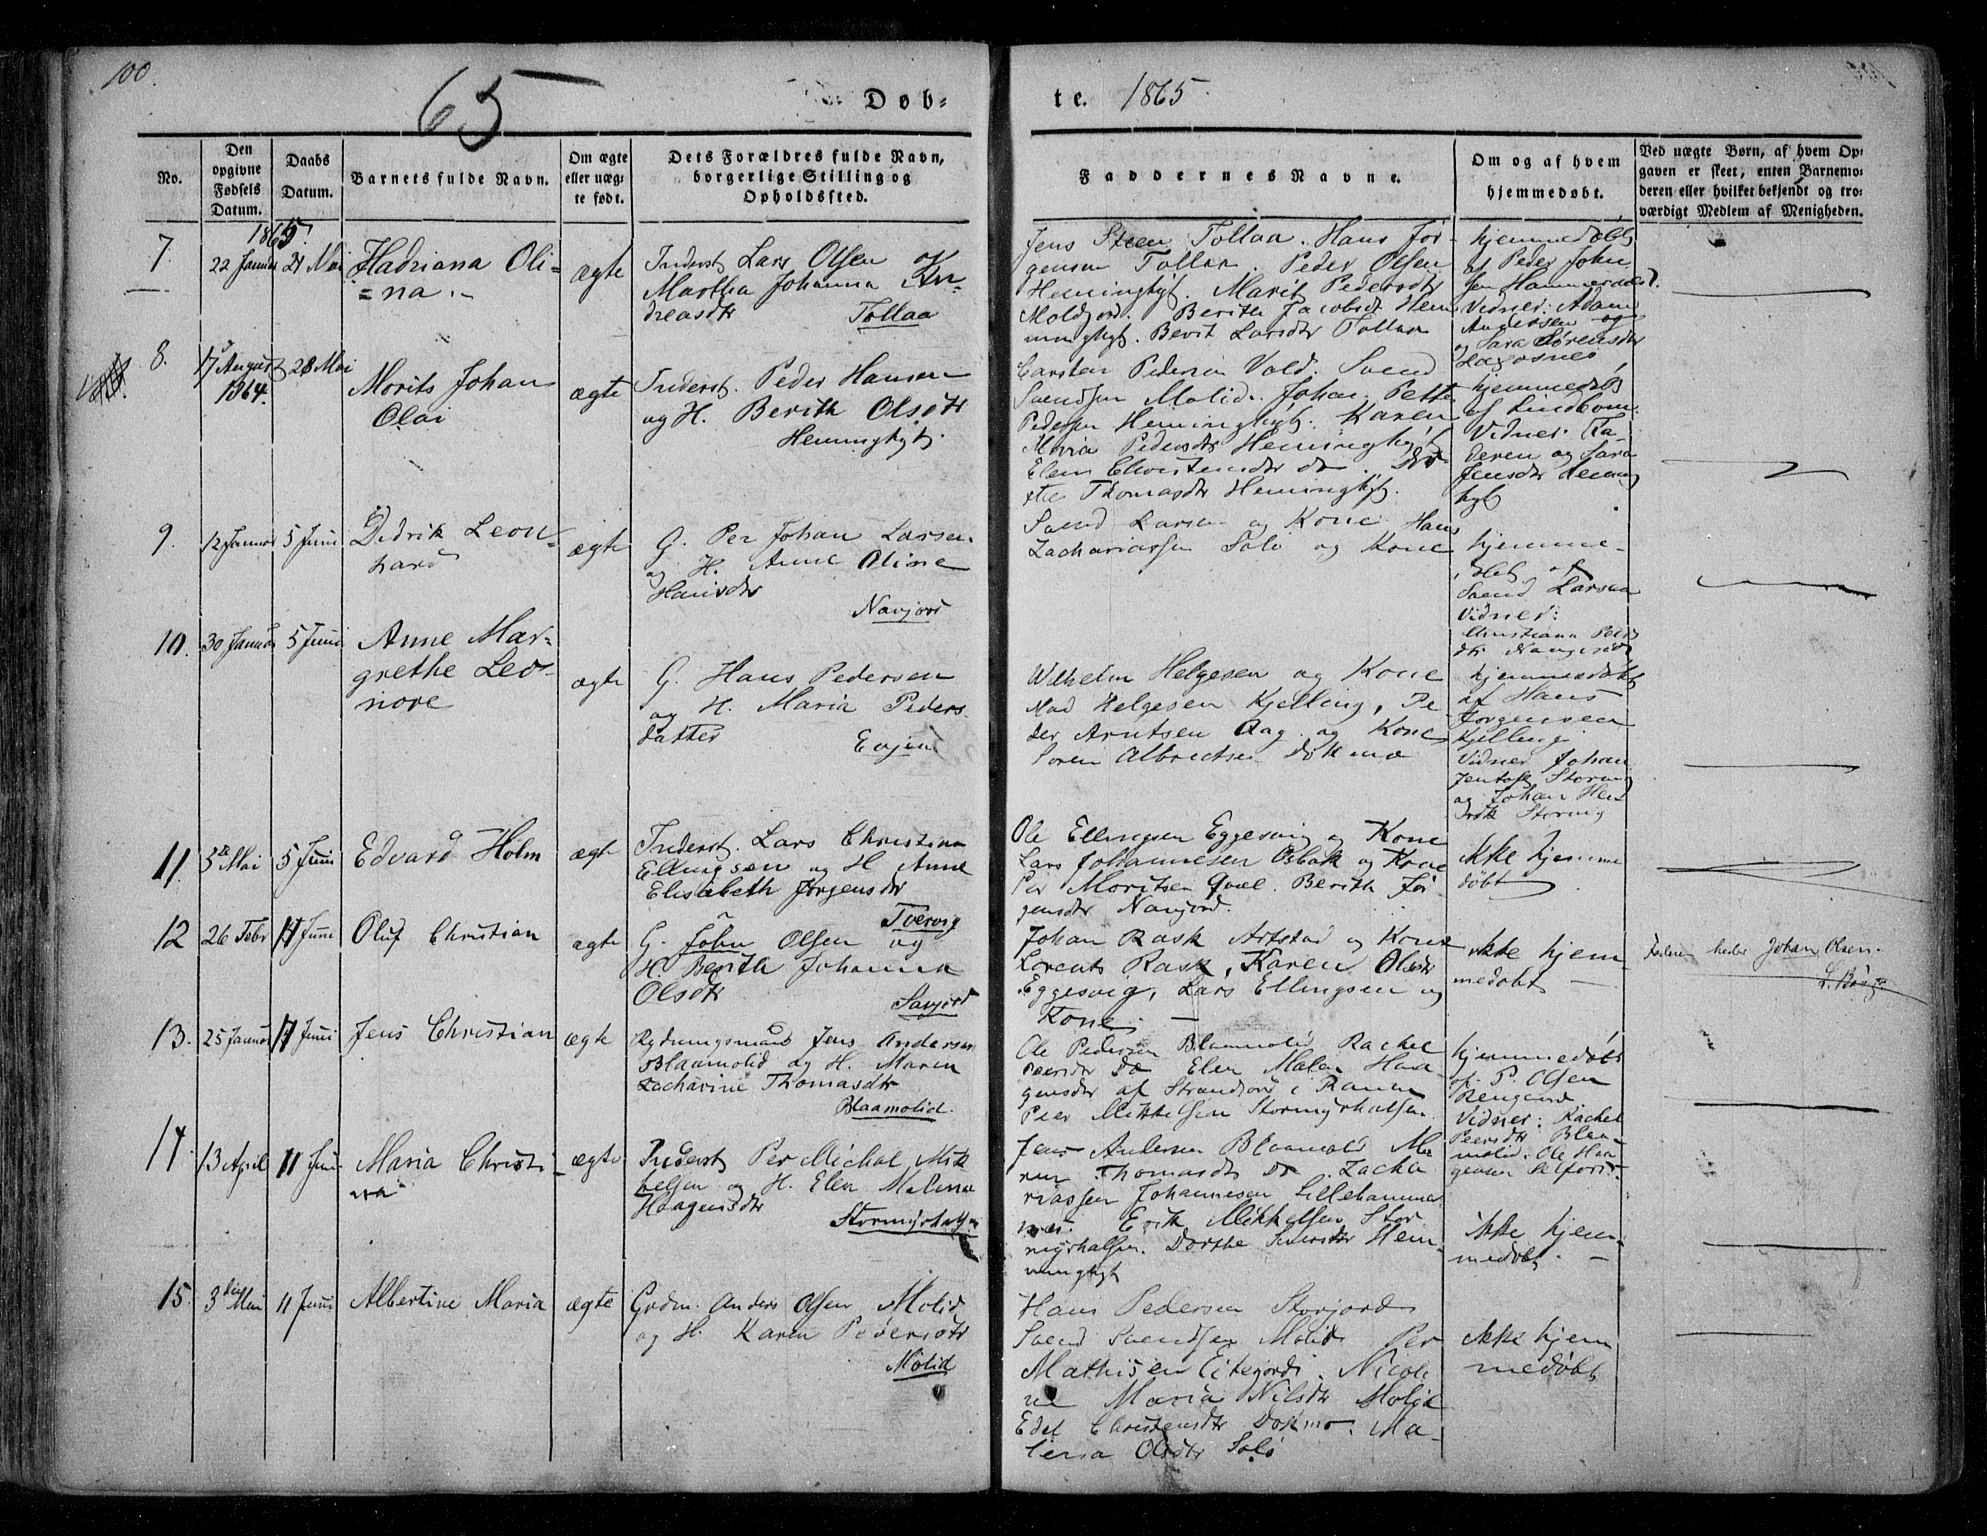 100.
65
Døb=
te. 1865.
No.
Den opgivne Fødsels Datum.
Daabs Datum.
Barnets fulde Navn.
Om ægte eller uæg= te født.
Dets Forældres fulde Navn, borgerlige Stilling og Opholdssted.
Faddernes Navne.
Om og af hvem hjemmedøbt.
Ved uægte Børn, af hvem Op= gaven er skeet, enten Barnemo= deren eller hvilket bekjendt og tro= værdigt Medlem af Menigheden.
1865.
7. 22 Januar 21 Mai Hadriana Oli=
=na.
ægte
Inderst Lars Olsen og
Martha Johanna An=
dreasdtr Tollaa
Jens Steen Tollaa. Hans Jør=
gensen Tollaa. Peder Olsen
Hemingtyt. Marit Pedersdtr
Moldjord. Berith Jacobsdt Hem
ningtyt. Berit Larsdtr Tollaa
hjemmedøbt
af Peder John
sen Hammernæs.
Vidner: Adam
Andersen og
og Sara Sørensdtr
8. 17 August 28 Mai
1864.
Morits Johan
Olai
ægte
Inderst. Peder Hansen
og H. Berith Olsdtr
Hemingtyt.
Carsten Pedersen Vold. Svend
Svendsen Molid. Johan Petter
Pedersen Hemingtyt. Karen
Maria Pedersdtr Hemingtyt
Elen Christensdtr do.
Thomasdtr Hemingtyt.
hjemmedøbt
af Lindbom.
Vidner: Fa=
deren og Sara
Jensdtr Heming
tyt
9. 12 Januar 5 Juni Didrik Leon=
hard
ægte
G. Per Johan Larsen
og H. Anne Oline
Hansdtr
Navjord
Svend Larsen og Kone Hans
Zachariassen Solø og Kone
hjemme-
døbt af
Svend Larsen
Vidner:
Christiana Peders
dtr
10. 30 Januar 5 Juni Anne Mar=
grethe Leo=
nore
ægte
G. Hans Pedersen
og H. Maria Peders
datter Evjen
Wilhelm Helgesen og Kone
Mad Helgesen Kjelling, Pe=
der Arntsen Aag og Kone
Søren Albrectsen Dokmo
hjemmedøbt
af Hans
Jørgensen
Kjelling
Vidner Johan
Jentoft Storvig
og Johan Hen
drik Storvig
11. 5te Mai 5 Juni Edvard Holm ægte
Inderst. Lars Christian
Ellingsen og H Anne
Elisabeth Jørgensdtr
Tvervig
Ole Ellingsen Eggesvig og Kone
Lars Johannesen Osbak og Kone
Per Moritsen Qvæl. Berith Jør=
gensdtr Navjord.
Ikke hjemme
døbt
12 26 Febr 11 Juni Oluf Christian ægte
G. John Olsen og
H. Berith Johanna
Olsdtr
Savjord
Johan Rask Arstad og Kone
Lorents Rask, Karen Olsdtr
Eggesvig, Lars Ellingsen og
Kone.
Ikke hjem=
medøbt
Faderen heder Johan Olsen.
13. 25 Januar 11 Juni Jens Christian ægte
Rydningsmand Jens Andersen
Blaamolid og H. Maren
Zacharine Thomasdtr
Blaamolid.
Ole Pedersen Blaamolid Rachel
Peersdtr Do Elen Malen Haa
gensdtr af Strandjord i Ranen
Peer Mikkelsen Stormyrhalsen.
hjemmedøbt
af P. Olsen
Rengaard
Vidner: Rachel
Peersdtr Blaa=
molid. Ole Haa
gensen
14. 13 April 11 Juni Maria Christi=
na
ægte
Inderst Per Michal Mik
kelsen og H. Elen Malene
Haagensdtr
Stormyrhalsen
Jens Andersen Blaamolid Ma
ren Thomasdtr Do. Zacha
riassen Johannesen Lillehammer
næs. Erik Mikkelsen Stor
myrhalsen. Dorthe Hem=
ningtyt
ikke hjem=
medøbt.
15. 3 dien Mai 11 Juni Albertine Maria ægte
Grdm. Anders Olsen Molid
og H. Karen Pedersdtr
Molid
Hans Pedersen Storjord
Svend Svendsen Molid. Per
Mathisen Eitejord. Nicoli
ne Maria Nilsdtr Molid
Edel Christensdtr Dokmo. Ma=
lena Olsdtr Solø
Ikke hjem
medøbt